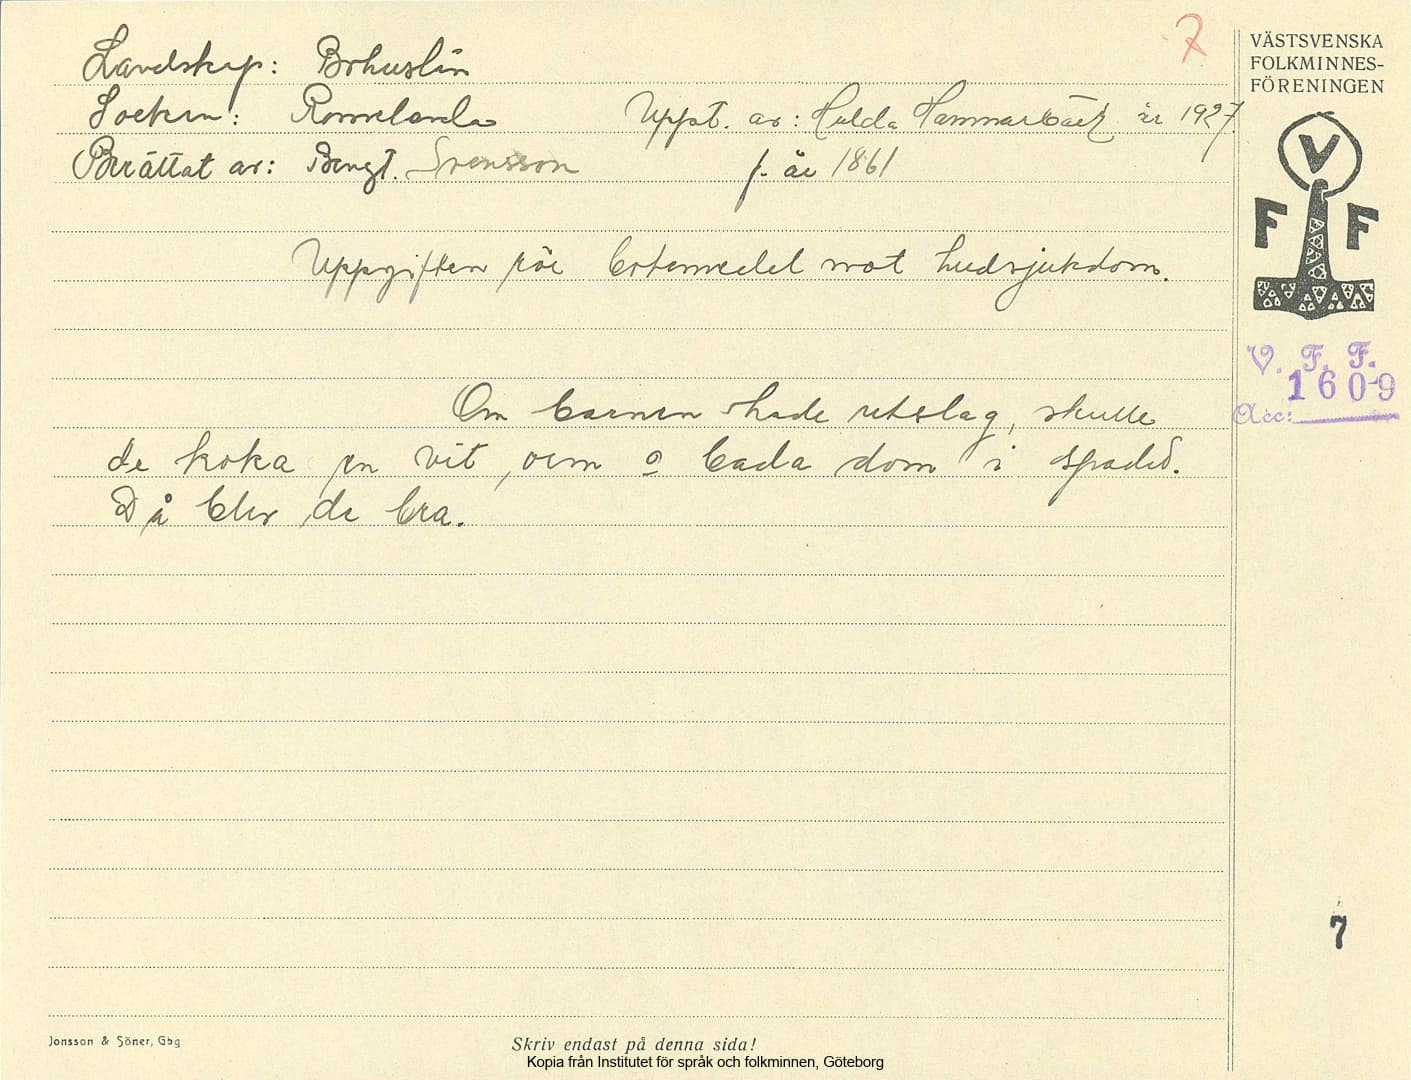 7
VÄSTSVENSKA
FOLKMINNES-
FÖRENINGEN
Landskap: Bohuslän
Socken: Romelanda Uppt. av: Hulda Hammarbäck år 1927.
Berättat av: Bengt. Svensson f. år 1861
V
F F
Uppgiften rör botemedel mot hudsjukdom.
V. F. F.
1609
Acc:
Om barnen hade utslag, skulle
de koka en vit orm o bada dom i spadet.
Då blev de bra.
7
Jonsson & Söner, Gbg
Skriv endast på denna sida!
Kopia från Institutet för språk och folkminnen, Göteborg